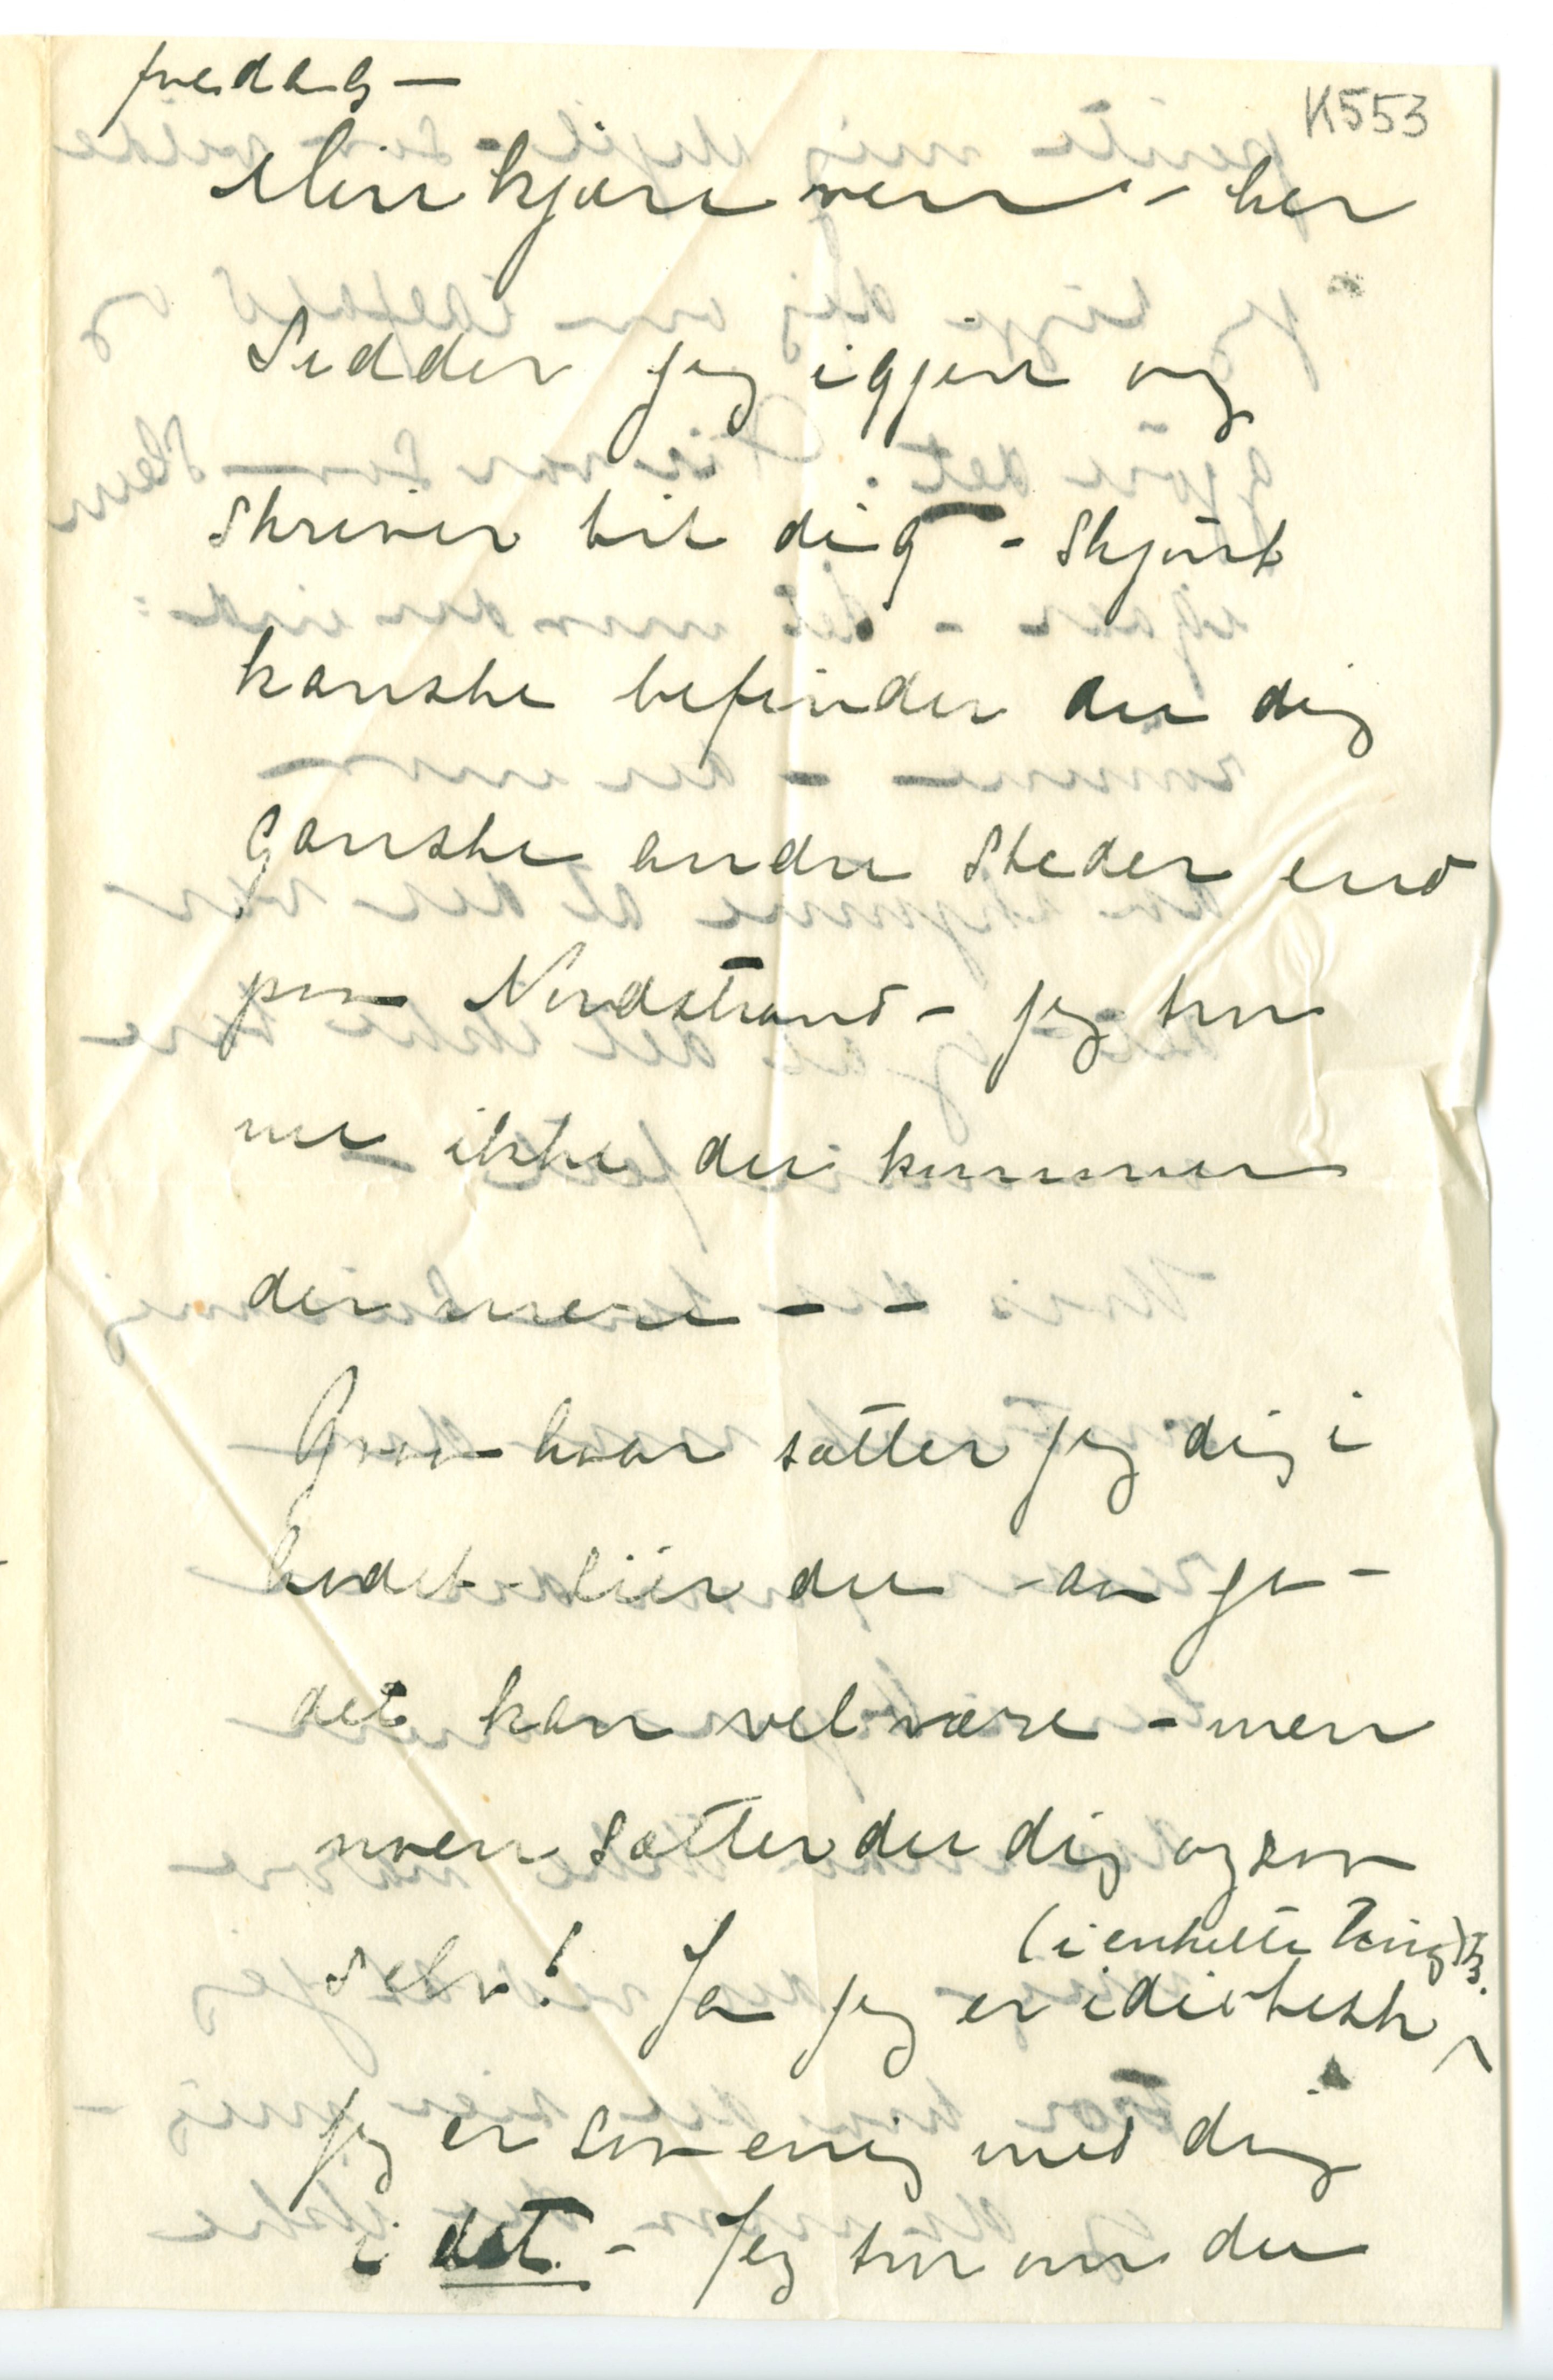 fredag —
K553
Min kjære ven – her
Sidder jeg igjen og
Skriver til dig – Skjønt
kanske befinder du dig
Ganske andre Steder end
paa Nordstrand – jeg tror
nu ikke du kommer
der mere – –
Graa haar sætter jeg dig i
hodet – siir du – aa ja –
det kan vel være – men
noen Sætter du dig ogsaa
selv! Ja jeg er idiotisk
(i enkelte Ting)
Jeg er saa enig med dig
i det – Jeg tror om du